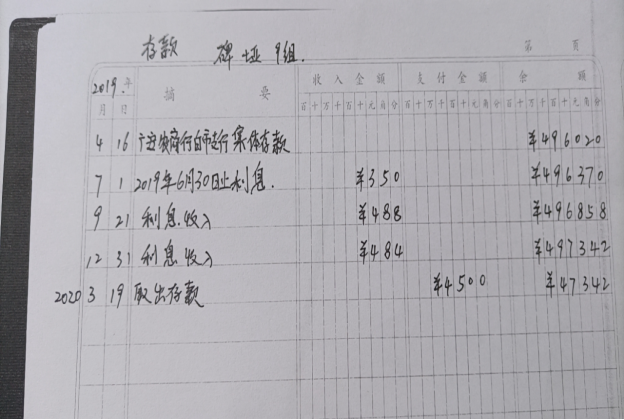 存款 碑垭9组.
第 页
2019.年 摘 要 收入金额 支付金额 余 额
月 日 百十万千百十元角分 百十万千百十元角分 百十万千百十元角分
4 16 广安农商行白市支行集体存款 ¥496020
7 1 2019年6月30日止利息. ¥350 ¥496370
9 21 利息收入 ¥488 ¥496858
12 31 利息收入 ¥484 ¥497342
2020 3 19 取出存款 ¥4500 ¥47342